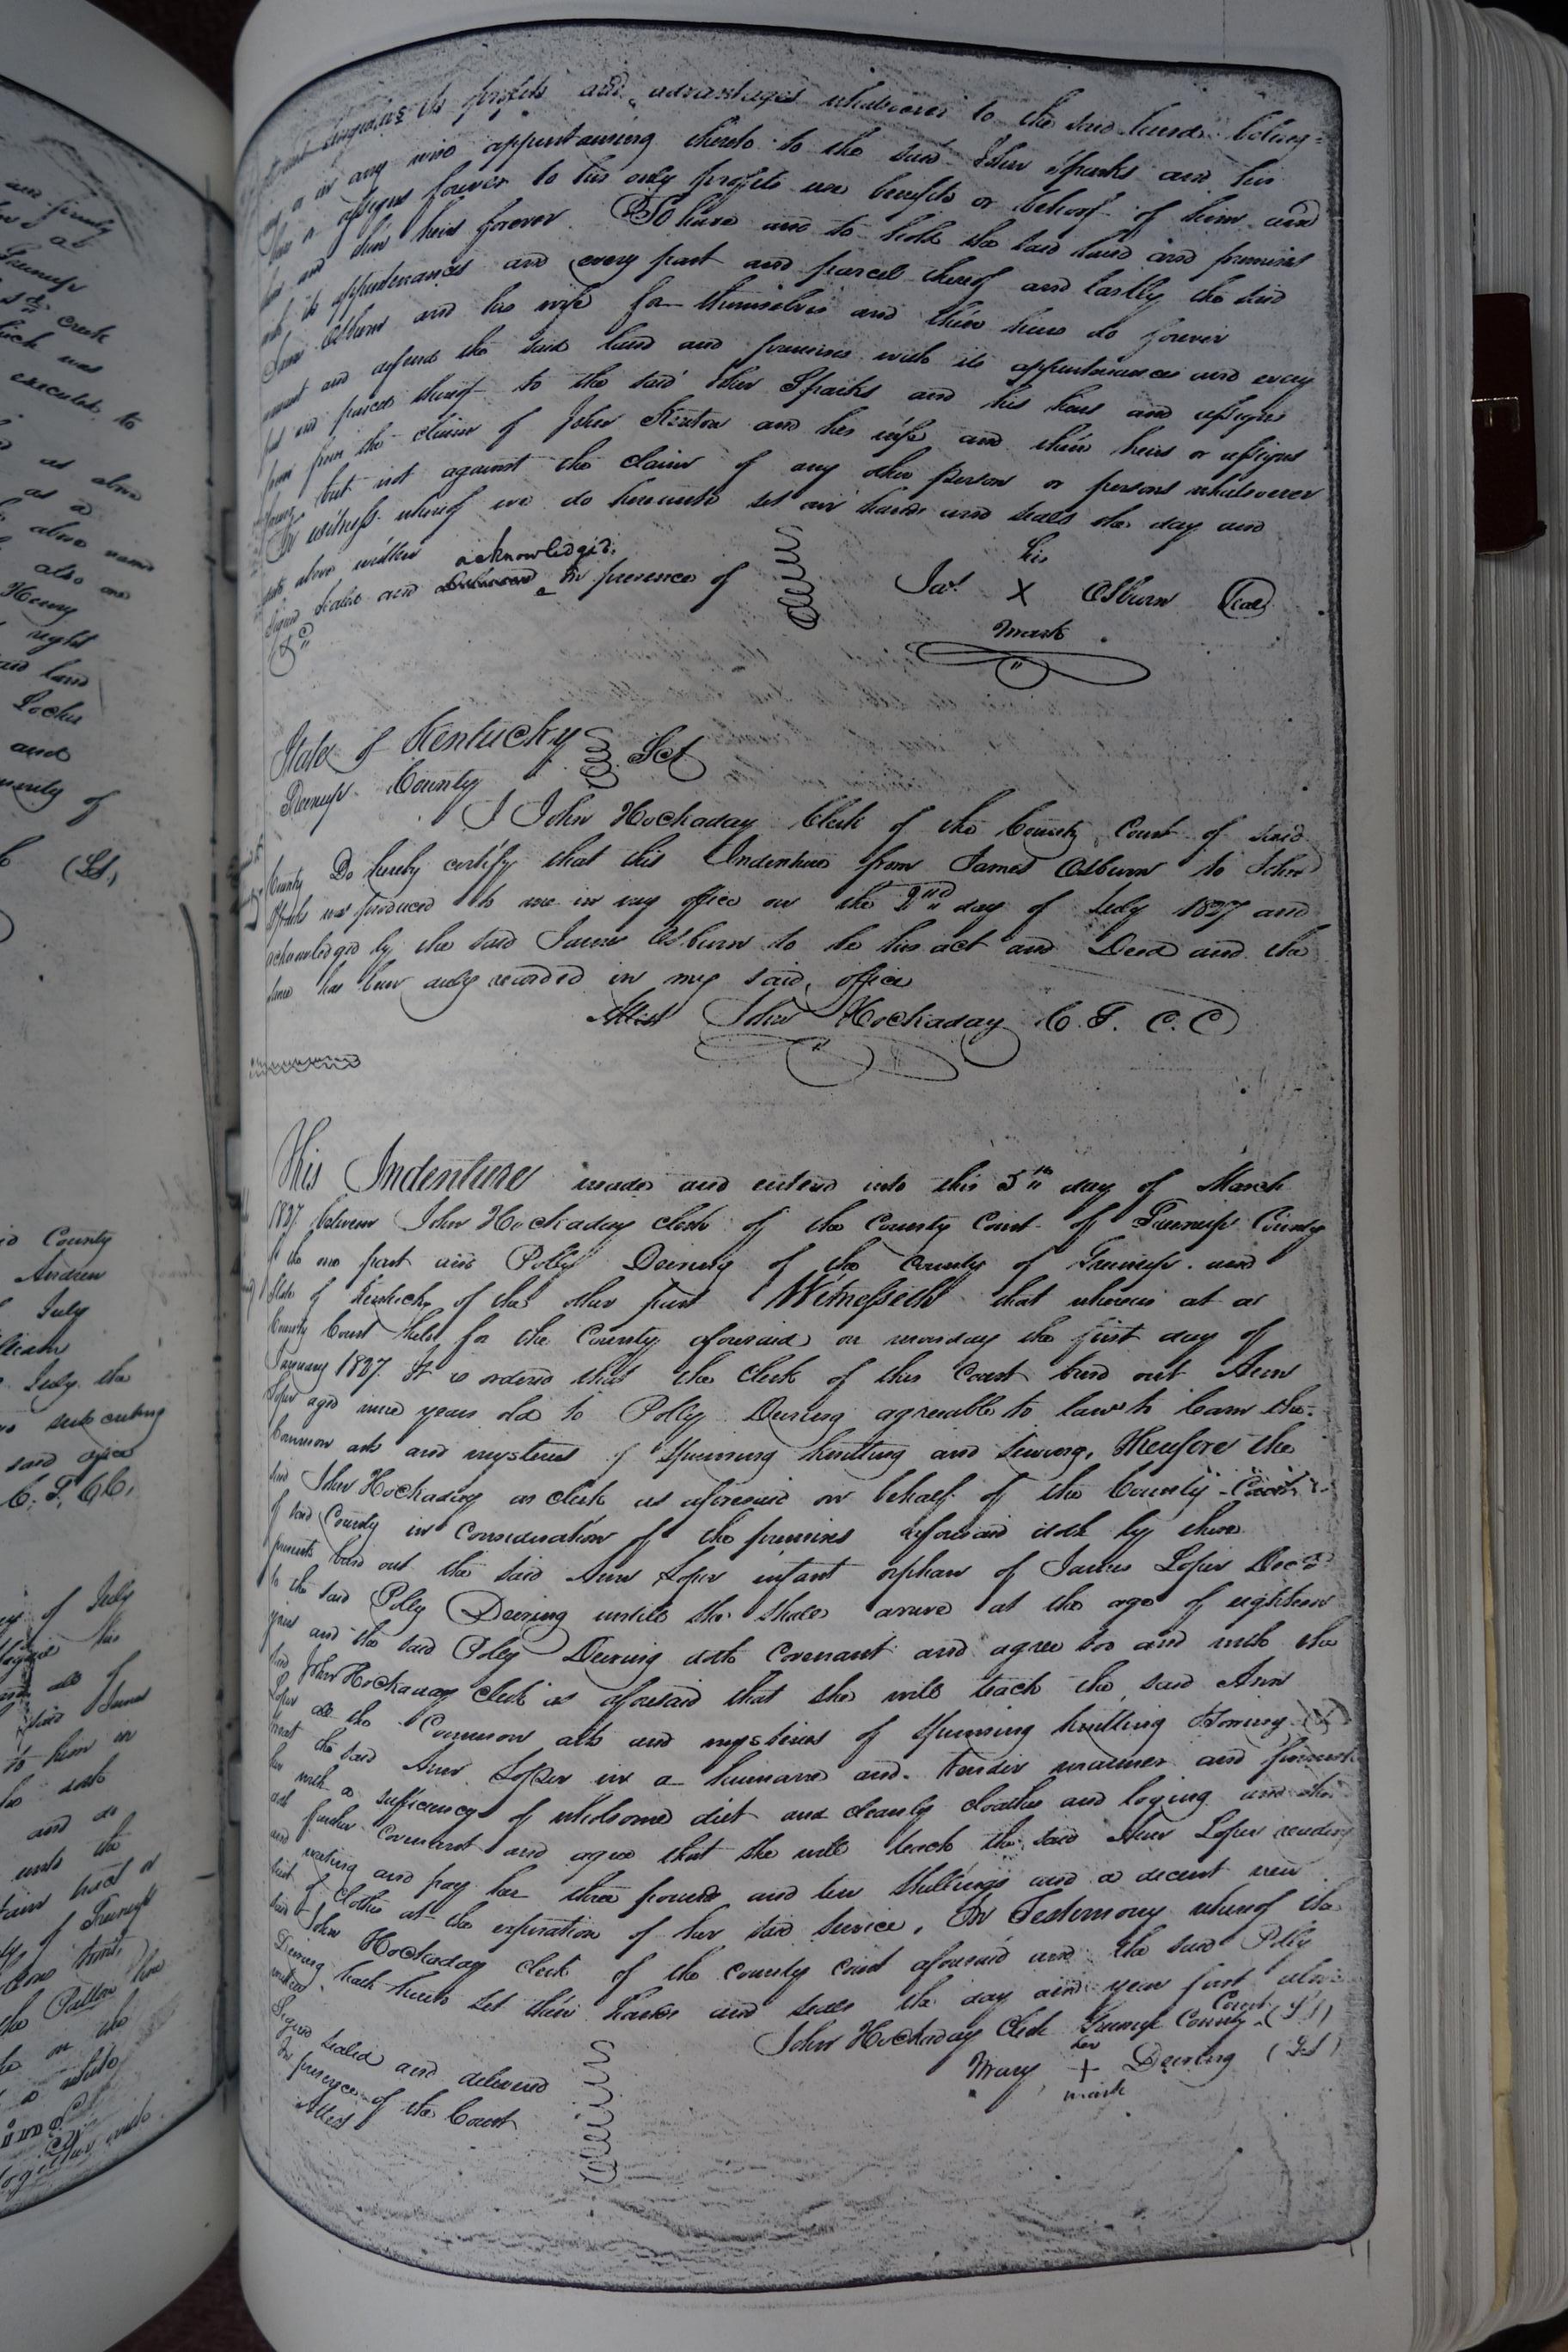 singular its profits and advantages whatsoever to the said land belong-
or in any wise appertaining thereto to the said John Sparks and his
heirs or assigns forever to his only profits use benefits or behoof of him and
his and their heirs forever To have and to hold the said land and premises
with its appurtenances and every part and parcel thereof and lastly the said
James Osburn and his wife for themselves and their heirs do forever
warrant and defend the said land and premises with its appurtenances and every
part and parcel thereof to the said John Sparks and his heirs and assigns
from the claim of John Kenton and his wife and their heirs or assigns
forever but not against the claim of any other person or persons whatsoever
In witness whereof we do hereunto set our hands and seals the day and
date above written
acknowledged
Signed Sealed and delivered in presence of
his
Jas. X Osburn Seal
mark
State of Kentucky Sct
Greenup County
I John Hockaday Clerk of the County Court of said
County Do hereby certify that this Indenture from James Osburn to John
Sparks was produced to me in my office on the 2nd day of July 1827 and
acknowledged by the said James Osburn to be his act and Deed and the
same has been duly recorded in my said office
Attest John Hockaday C. G. C. C
This Indenture made and entered into this 5th day of March
1827 between John Hockaday clerk of the County Court of Greenup County
of the one part and Polly Deering of the County of Greenup and
State of Kentucky of the other part Witnesseth that whereas at a
County Court held for the County aforesaid on monday the first day of
January 1827 It is ordered that the clerk of this Court bind out Ann
Loper aged nine years old to Polly Deering agreeable to law to learn the
Common arts and mysteries of Spinning knitting and sewing, Therefore the
said John Hockaday as clerk as aforesaid on behalf of the County Court
of said County in Consideration of the premises aforesaid doth by these
presents bind out the said Ann Loper infant orphan of James Loper Decd
to the said Polly Deering untill she shall arrive at the age of eighteen
years and the said Polly Deering doth covenant and agree too and with the
said John Hockaday clerk as aforesaid that she will teach the said Ann
Loper all the Common arts and mysteries of Spinning knitting &
treat the said Ann Loper in a humane and tender manner and furnish
her with a sufficiency of wholsome diet and cleanly cloathes and loging and
doth further Covenant and agree that she will teach the said Ann Loper reading
and writing and pay her three pounds and ten shillings and a decent new
suit of clothes at the expiration of her said service, In Testimony whereof the
said John Hockaday clerk of the County Court aforesaid and the said Polly
Deering hath hereto set their hands and seals the day and year first above
written
John Hockaday Clerk Greenup County Court (LS)
her
Mary + Deering (LS)
mark
Signed sealed and delivered
In presence of the Court
Attest
and
Greenup
creek
was
executed to
as also
as a
also
Henry
right
land
and
of
(LS)
County
Andrew
July
July the
said office
of July
to him in
and
unto the
of Greenup
the
on the